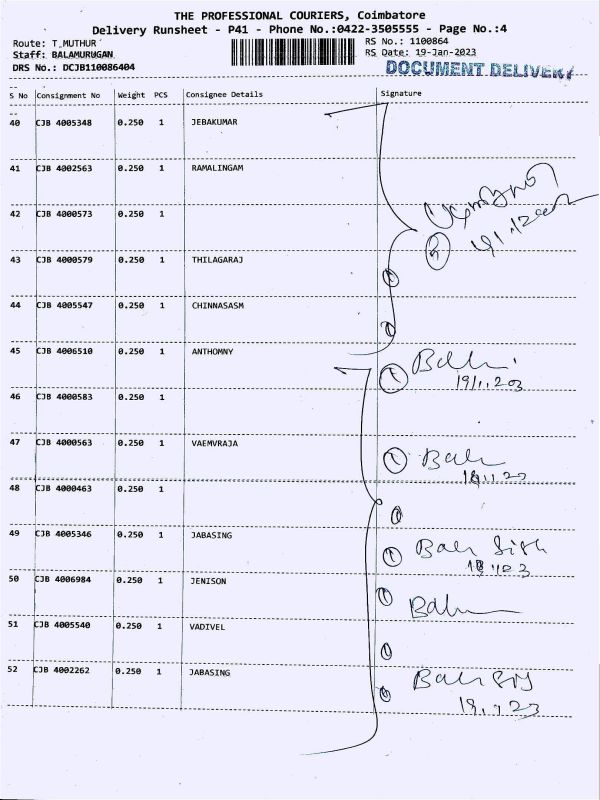 THE PROFESSIONAL COURIERS, Coimbatore
Delivery Runsheet - P41 - Phone No.:0422-3505555 - Page No.:4
Route: T.MUTHUR
RS No.: 1100864
Staff: BALAMURUGAN
RS Date: 19-Jan-2023
DRS No.: DCJB110086404
DOCUMENT DELIVERY
S No Consignment No Weight PCS Consignee Details Signature
40 CJB 4005348 0.250 1 JEBAKUMAR
41 CJB 4002563 0.250 1 RAMALINGAM
42 CJB 4000573 0.250 1
43 CJB 4000579 0.250 1 THILAGARAJ
44 CJB 4005547 0.250 1 CHINNASASM
45 CJB 4006510 0.250 1 ANTHOMNY
46 CJB 4000583 0.250 1
47 CJB 4000563 0.250 1 VAEMVRAJA
48 CJB 4000463 0.250 1
49 CJB 4005346 0.250 1 JABASING
50 CJB 4006984 0.250 1 JENISON
51 CJB 4005540 0.250 1 VADIVEL
52 CJB 4002262 0.250 1 JABASING